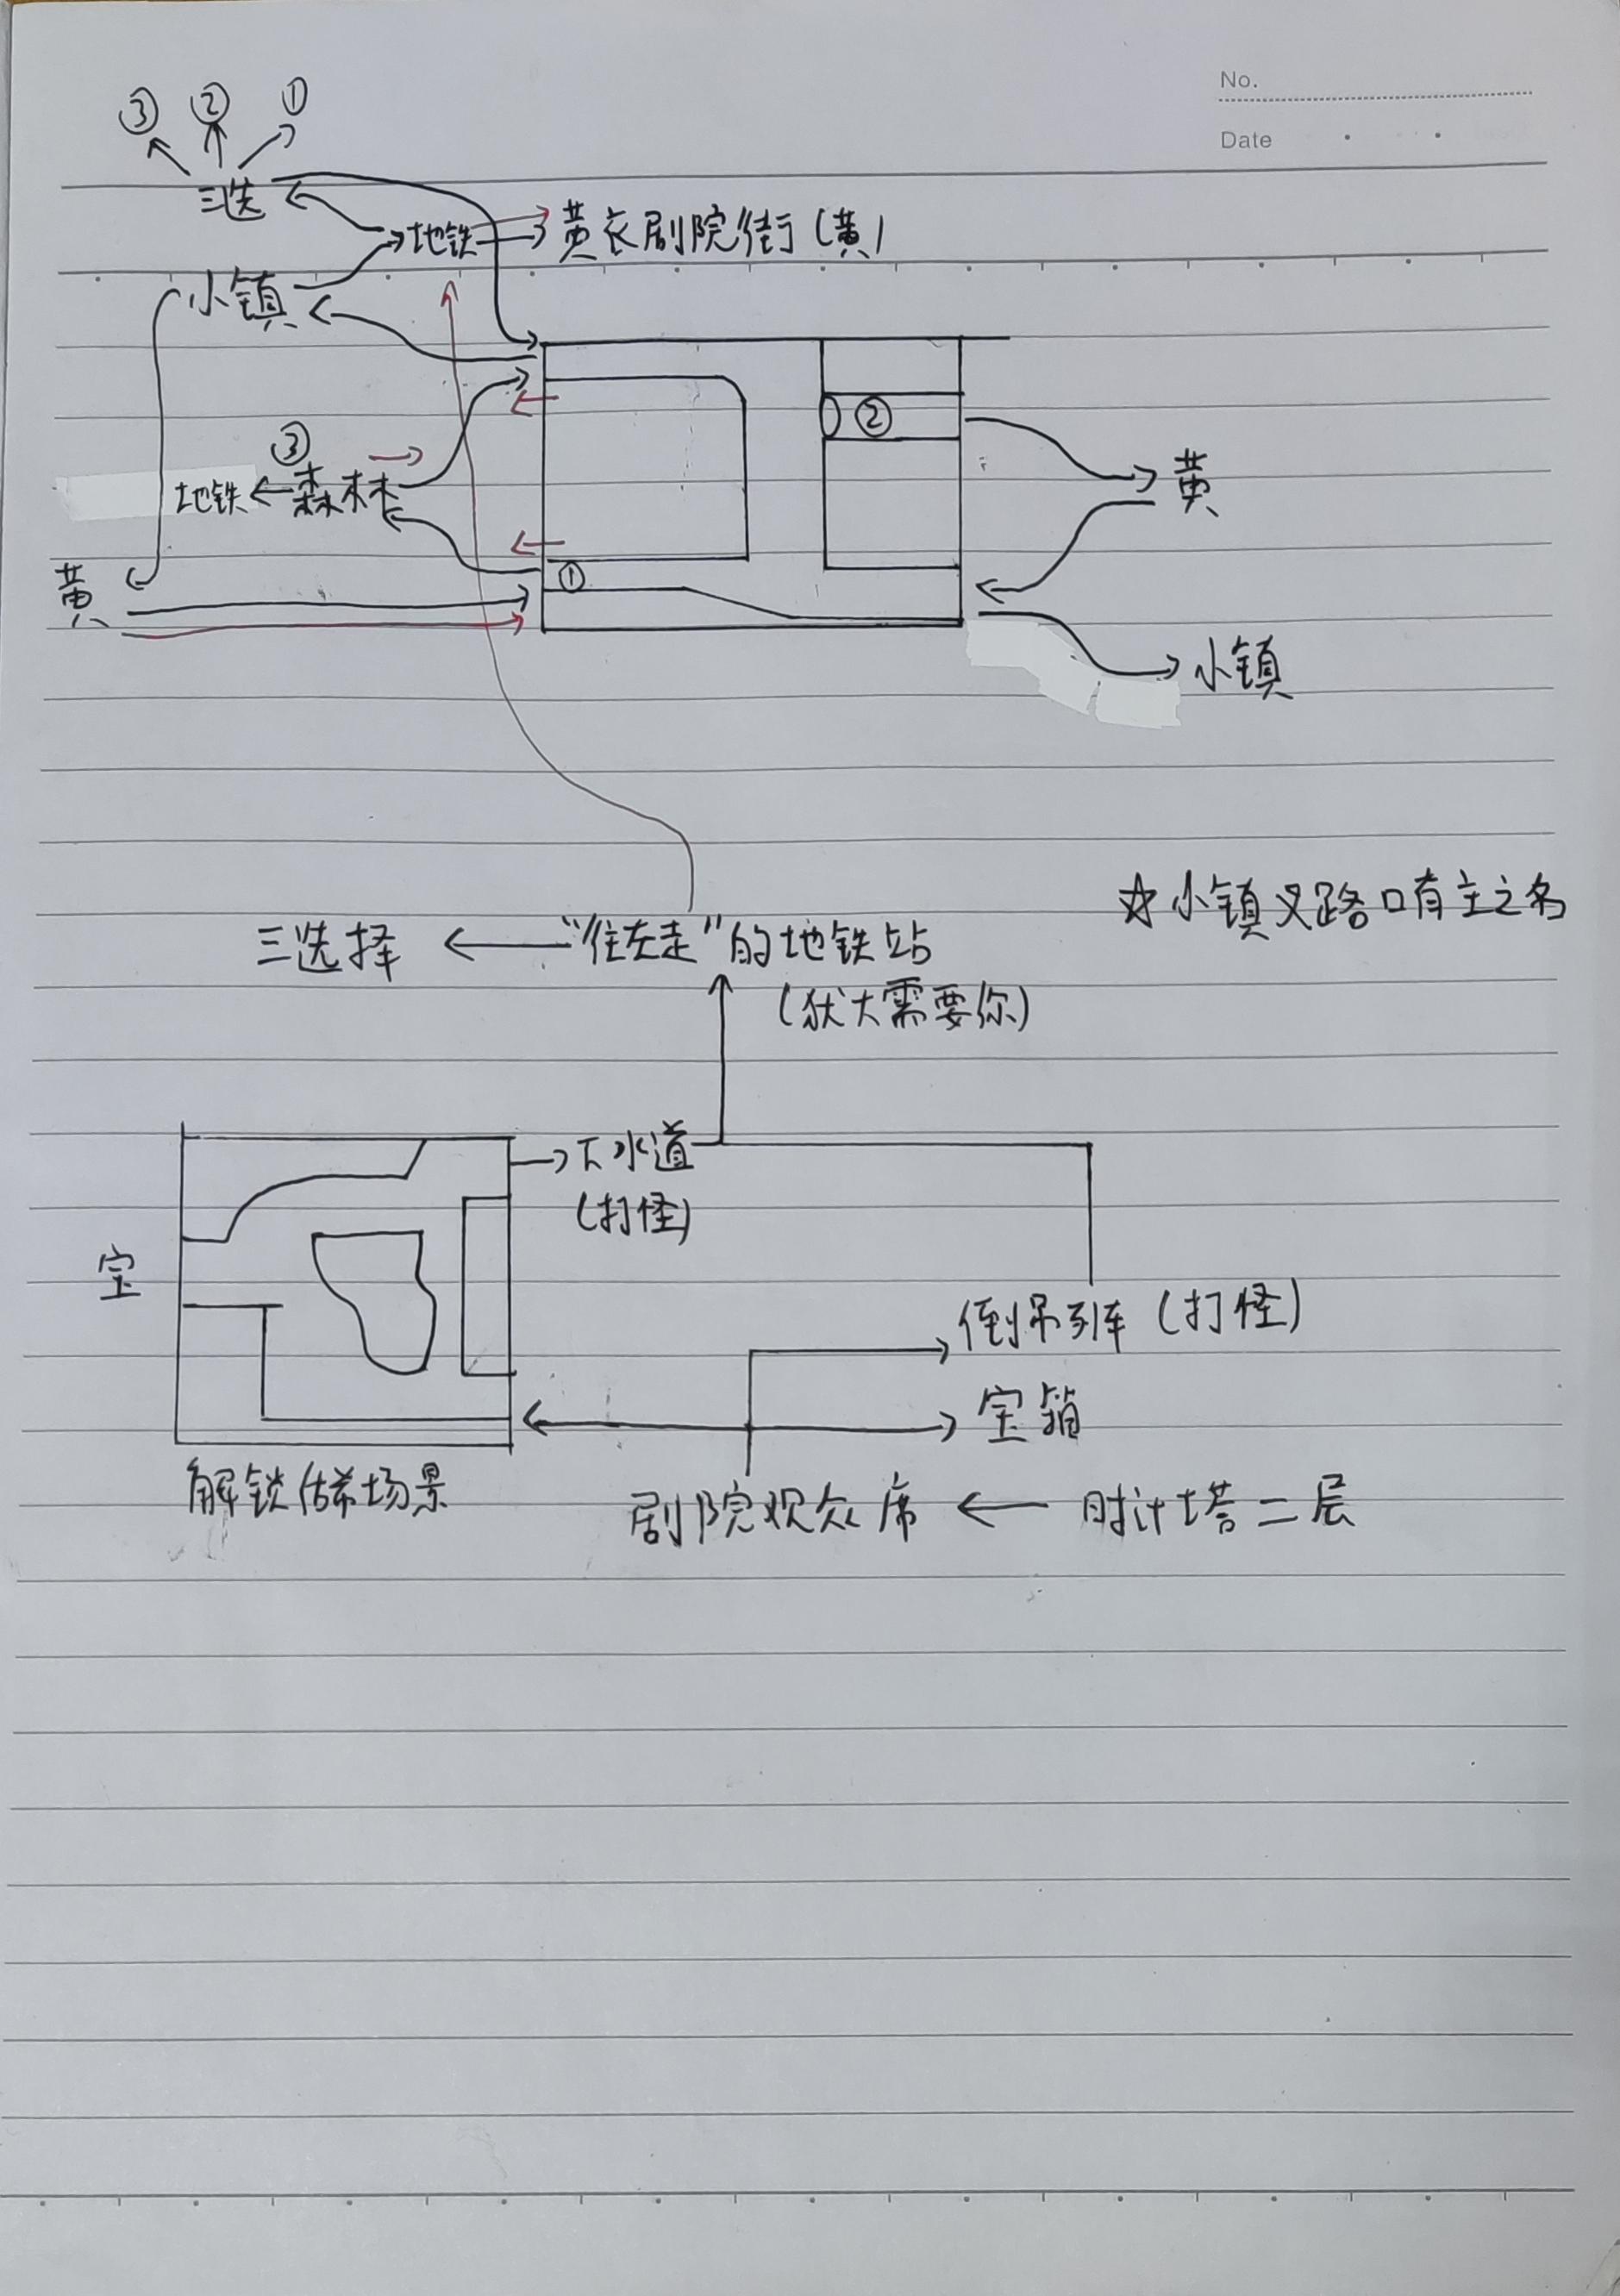 No.
Date
③ ② ①
三选
地铁 黄衣剧院街(黄)
小镇
②
③
黄
地铁 森林
①
黄
小镇
☆小镇叉路口有主之名
三选择 "往左走"的地铁站
(犹大需要你)
下水道
(打怪)
宝
倒吊列车(打怪)
宝箱
解锁 场景
剧院观众席 时计塔二层